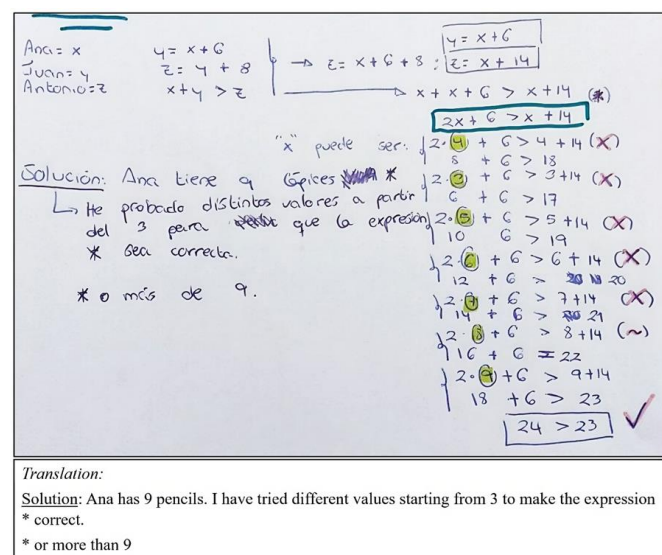 Ana = x
Juan = y
Antonio = z
y = x + 6
z = y + 8
x + y > z
→ z = x + 6 + 8 :
y = x + 6
z = x + 14
x + x + 6 > x + 14 (*)
2x + 6 > x + 14
"x" puede ser:
2·4 + 6 > 4 + 14 (X)
8 + 6 > 18
2·3 + 6 > 3 + 14 (X)
6 + 6 > 17
2·5 + 6 > 5 + 14 (X)
10 6 > 19
2·6 + 6 > 6 + 14 (X)
12 + 6 > 20
2·7 + 6 > 7 + 14 (X)
14 + 6 > 21
2·8 + 6 > 8 + 14 (~)
16 + 6 = 22
2·9 + 6 > 9 + 14
18 + 6 > 23
24 > 23 ✓
Solución: Ana tiene 9 lápices *
↳ He probado distintos valores a partir
del 3 para que la expresión
* sea correcta.
* o más de 9.
Translation:
Solution: Ana has 9 pencils. I have tried different values starting from 3 to make the expression
* correct.
* or more than 9